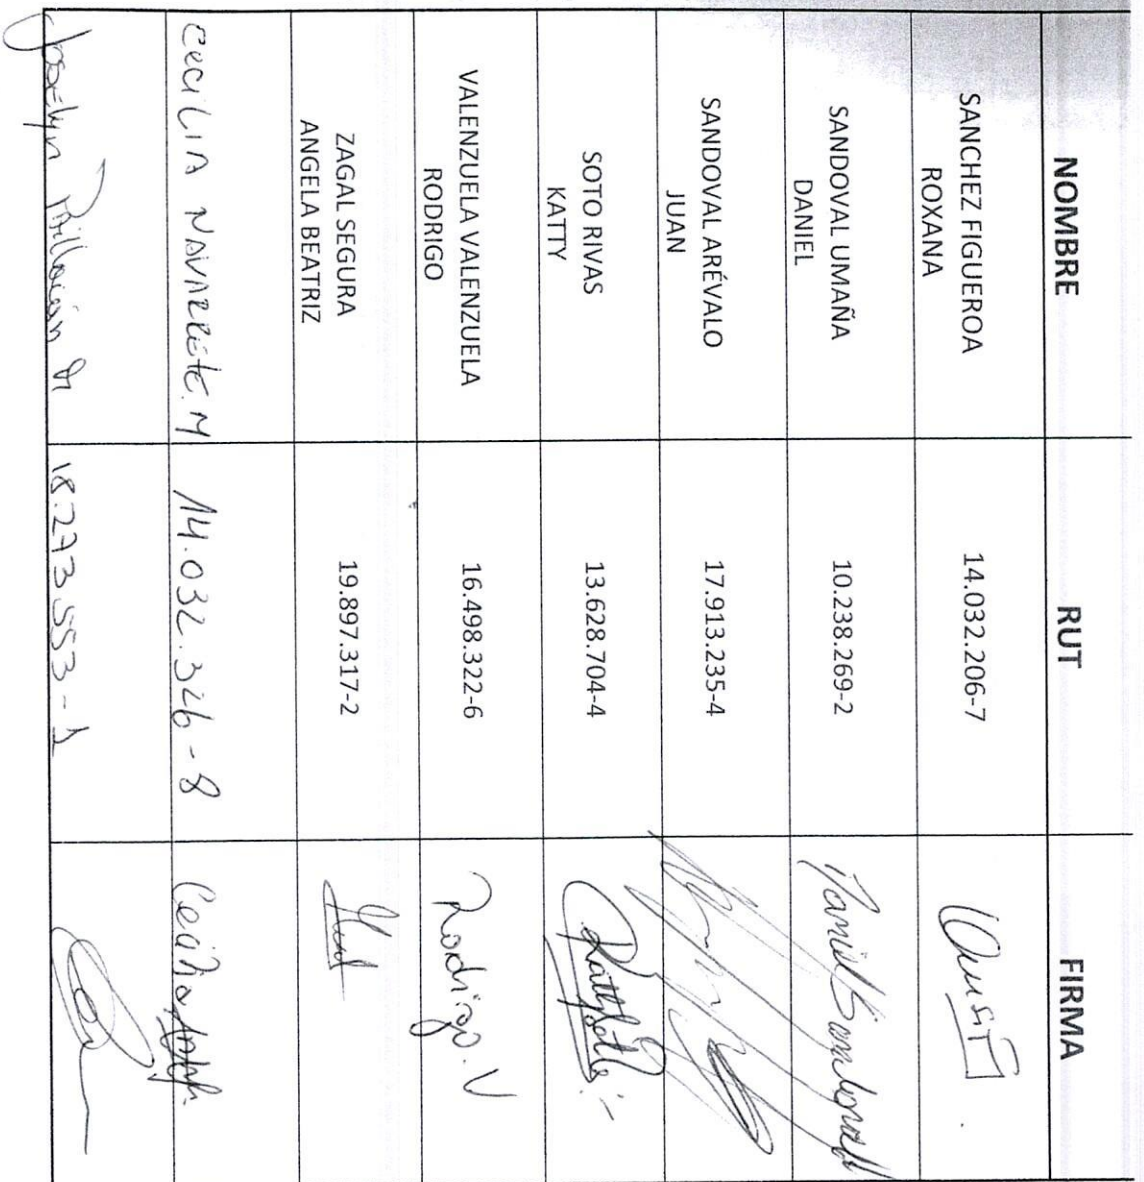 NOMBRE RUT FIRMA
SANCHEZ FIGUEROA
ROXANA
14.032.206-7
SANDOVAL UMAÑA
DANIEL
10.238.269-2
Daniel Sandoval
SANDOVAL ARÉVALO
JUAN
17.913.235-4
SOTO RIVAS
KATTY
13.628.704-4
Katty Soto
VALENZUELA VALENZUELA
RODRIGO
16.498.322-6
Rodrigo. V
ZAGAL SEGURA
ANGELA BEATRIZ
19.897.317-2
CECILIA NAVARRETE. M 14.032.326-8 Cecilia
Joselyn 18.273.553-1